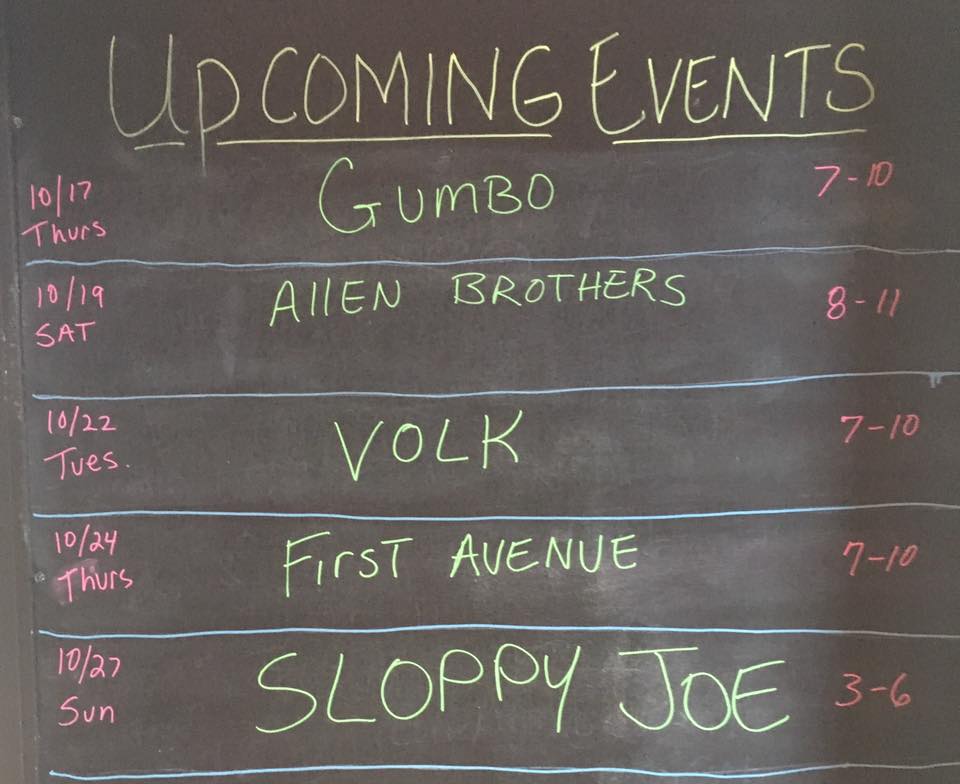 UpCOMING EVENTS
10/17 GUMBO 7-10
Thurs
10/19 AllEN BROTHERS 8-11
SAT
10/22 VOLK 7-10
Tues.
10/24 FIrST AVENUE 7-10
Thurs
10/27 SLOPPY JOE 3-6
Sun